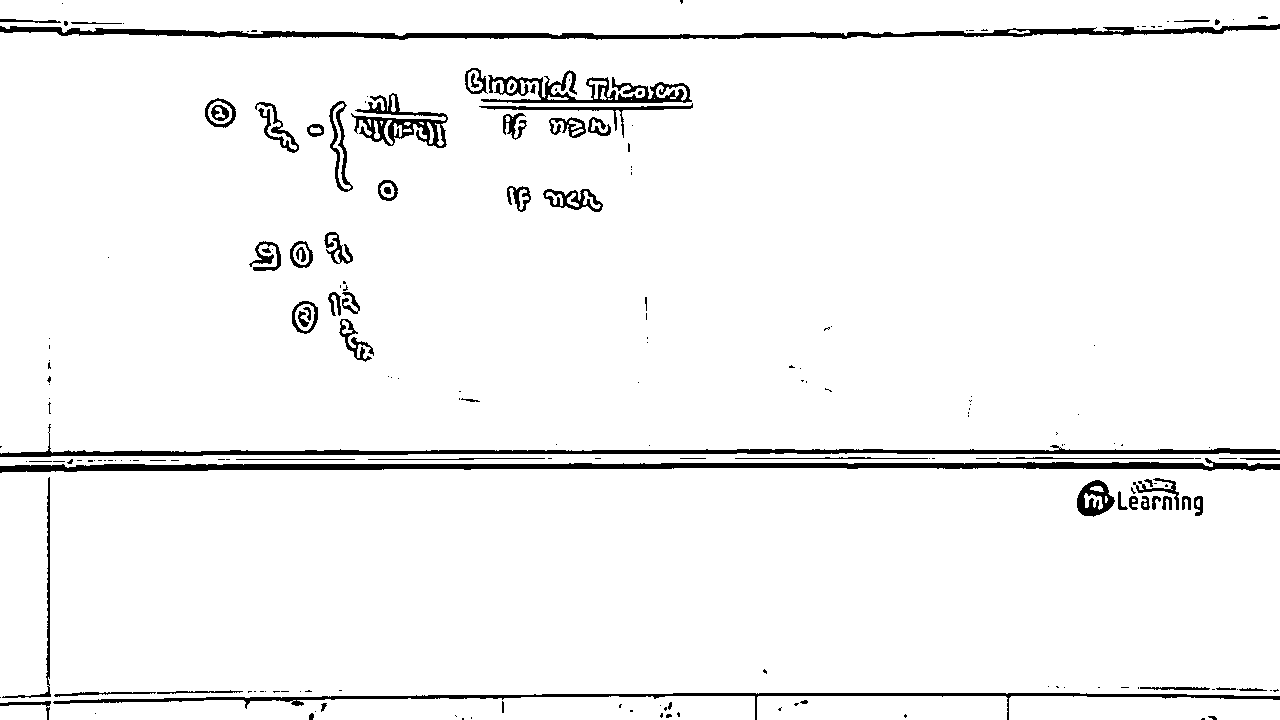 Binomial Theorem
② ⁿCᵣ = { n! / r!(n-r)! if n ≥ r
0 if n < r
eg ①
②
Learning